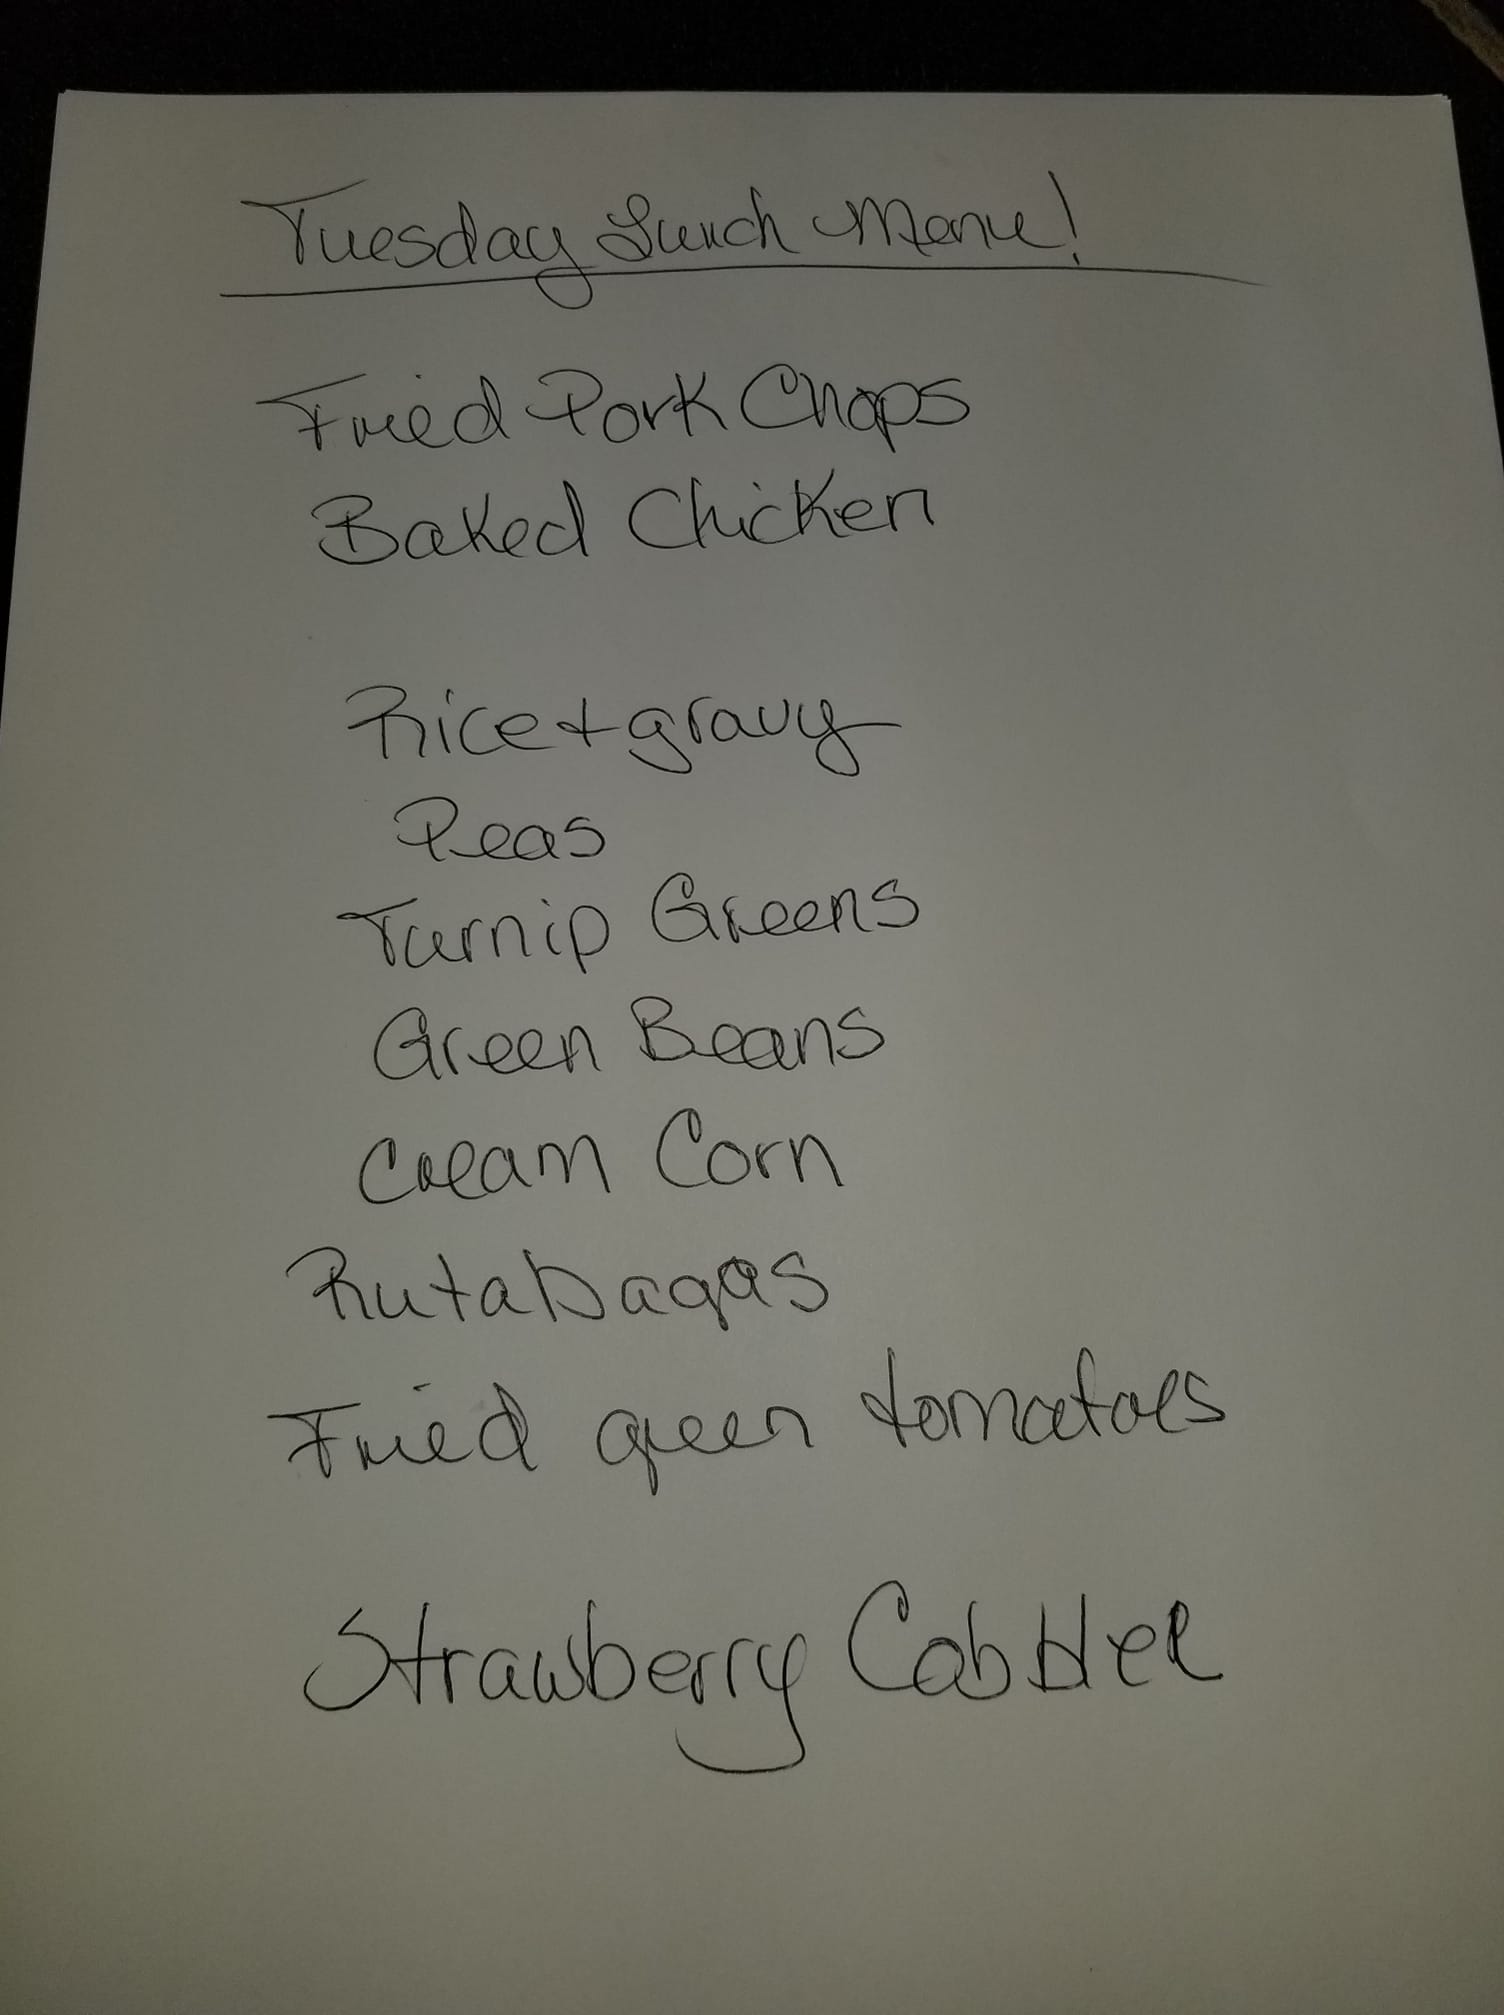 Tuesday Lunch Menu!
Fried Pork Chops
Baked Chicken
Rice + gravy
Peas
Turnip Greens
Green Beans
Cream Corn
Rutabagas
Fried green tomatoes
Strawberry Cobbler